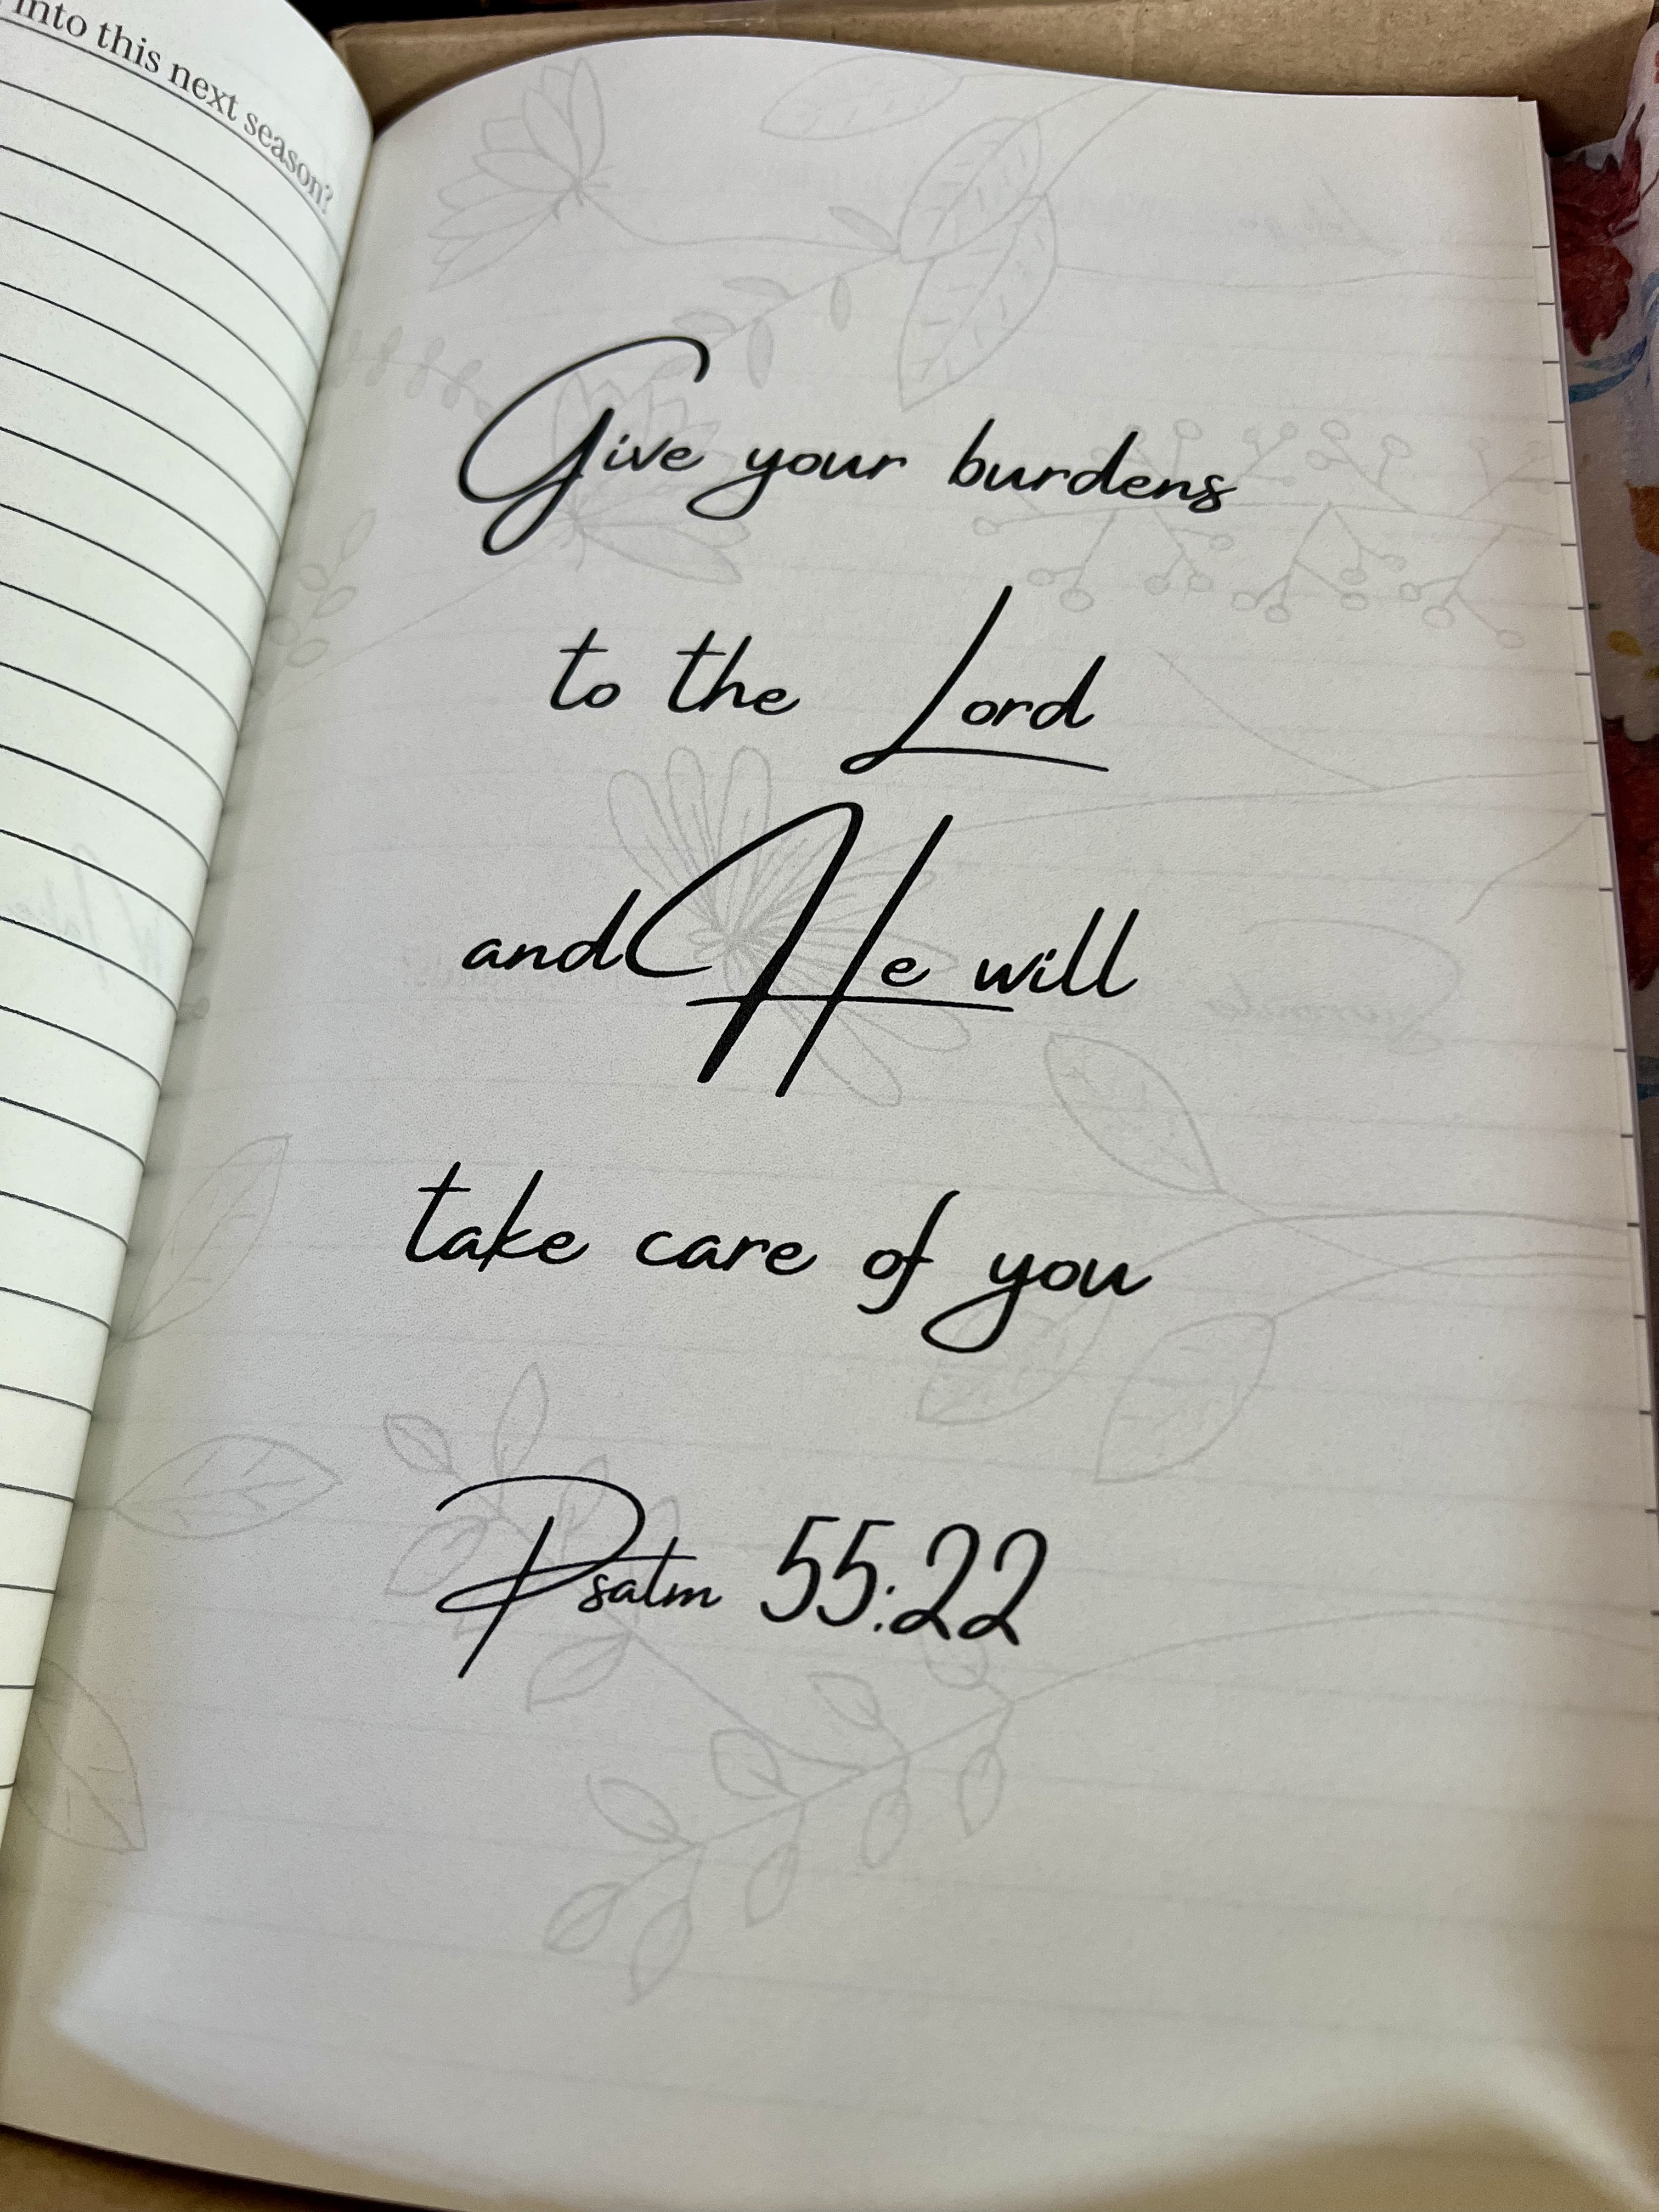 into this next season?
Give your burdens
to the Lord
and He will
take care of you
Psalm 55:22